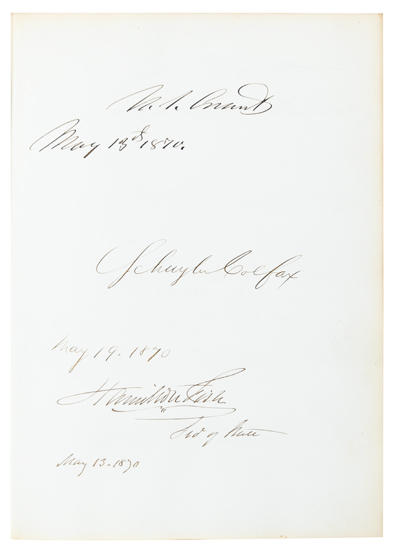 U. S. Grant
May 13th 1870.
Schuyler Colfax
May 19. 1870
Hamilton Fish
Sec of State
May 13. 1870